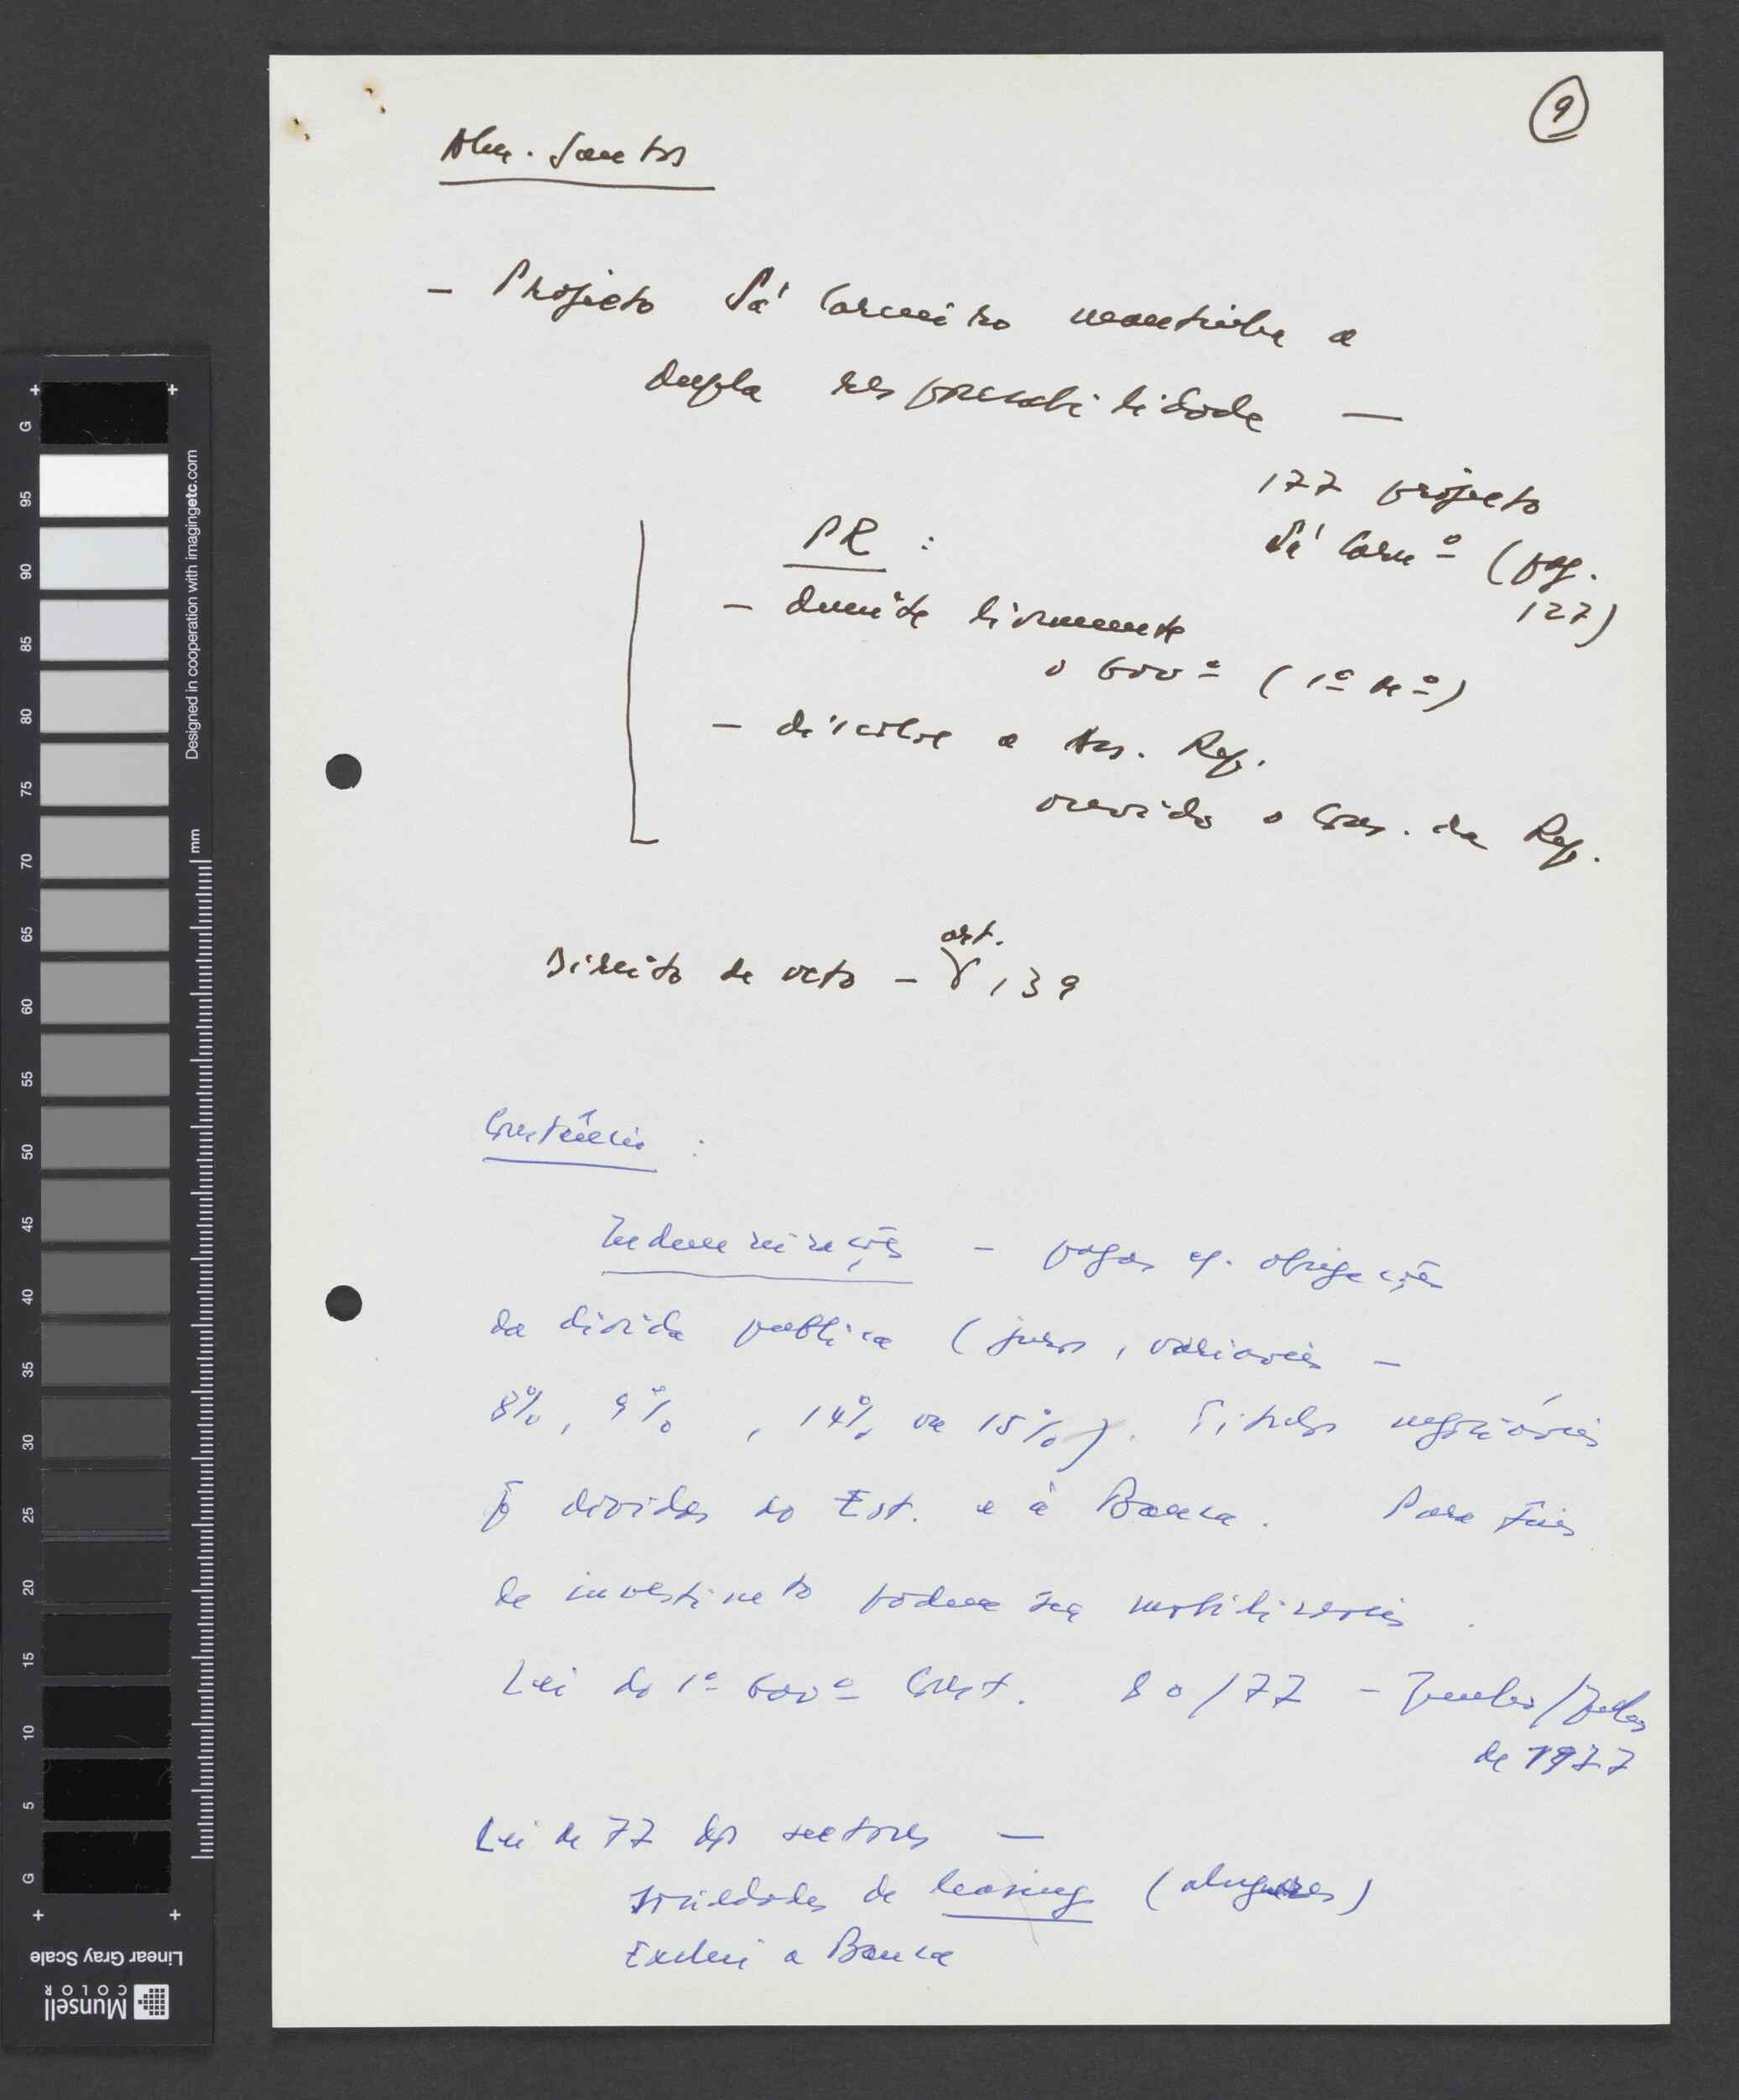 9
Alm. Santos
- Projeto Sá Carneiro mantinha a
dupla responsabilidade —
177 projecto
Sá Carnº (pag.
127)
PR :
- demite livremente
o Govº (1º Mº)
- dissolve a Ass. Rep.
ouvido o Cons. da Rep.
Direito de veto - art. 139
Constâncio :
Indemnizações - pagas c/. obrigações
da divida publica (juros, variaveis -
8%, 9%, 14% ou 15%). Titulos negociáveis
p dividas ao Est. e à Banca. Para fins
de investimeto podem ser mobilizaveis.
Lei do 1º Govº Const. 80/77 - Junho/Julho
de 1977
Lei de 77 dos sectores —
sociedades de leasing (alugueres)
Exclui a Banca
G
95
90
85
80
75
70
65
60
55
50
45
40
35
30
25
20
15
10
5
G
mm
Designed in cooperation with imagingetc.com
Linear Gray Scale
Munsell
COLOR